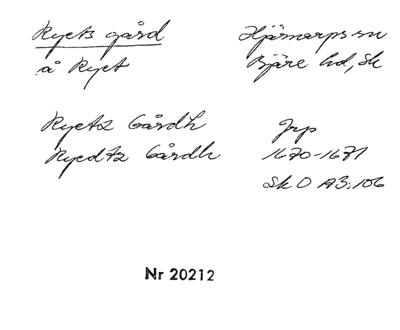 Ryets gård
å Ryet
Hjärnarps sn
Bjäre hd, Sk
Ryetz Gårdh
Ryedtz Gårdh
Jrp
1670-1671
Sk O A3:106
Nr 20212